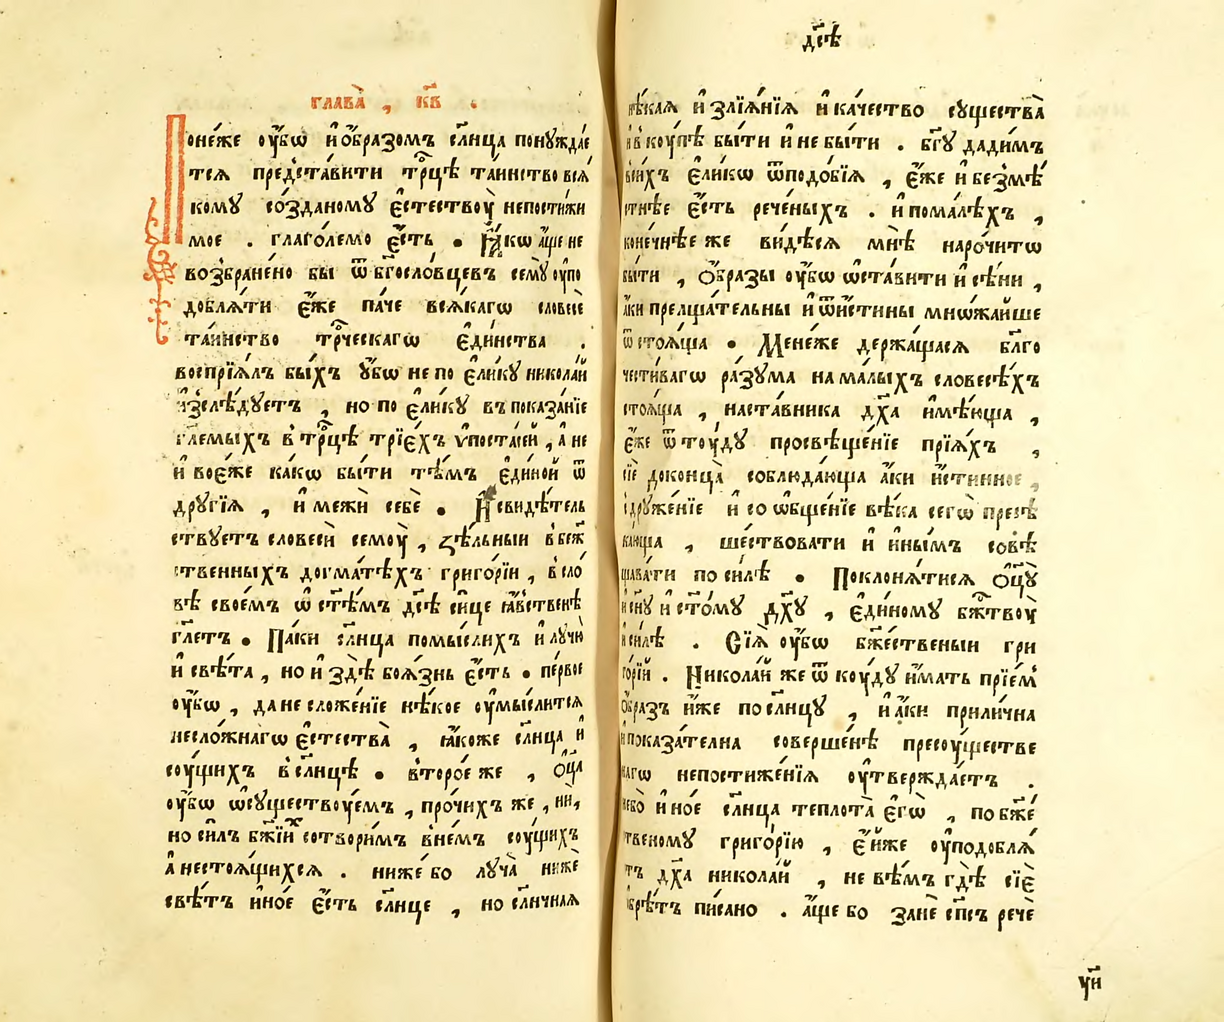 глава̀ , к҃в .
Поне́же ᲂу҆́бѡ и҆ ѻ҆́бразомъ с҃лнца понꙋждае
тсѧ предста́вити трⷪ҇цѣ та́инство всѧ́
комꙋ со́зданомꙋ є҆стествоу̀ непостижи
мое . глаго́лемо є҆́сть . Ꙗ҆́кѡ а҆́ще не
возбране́но бы ѿ бг҃осло́вцевъ семꙋ̀ оупо
доблѧ́ти є҆́же па́че всѧ́кагѡ словесѐ
та́инство трⷪ҇ческагѡ є҆ди́нства .
воспрїѧ́лъ бы́хъ ᲂу҆́бѡ не по є҆ли́кꙋ никола́й
и҆зслѣ́дꙋетъ , но по є҆ли́кꙋ въ показа́нїе
гл҃емыхъ в трⷪ҇цѣ трїе́хъ ѵ҆поста́сей , а҆ не
и҆ во є҆́же ка́кѡ бы́ти тѣ́мъ є҆ди́ной ѿ
дрꙋгі́ѧ , и҆ межѝ себѐ . И҆ свидѣ́тель
ствꙋетъ словесѝ семоу̀ , ѕѣ́льныи в бж҃
ственныхъ догма́тѣхъ григо́рїи , в сло́
вѣ свое́мъ ѡ҆ ст҃ѣ́мъ дс҃ѣ си́це ꙗ҆́вственѣ
гл҃етъ . Па́ки с҃лнца помы́слихъ и҆ лꙋчю̀
и҆ свѣ́та , но и҆ здѣ̀ боѧ́знь є҆́сть . пе́рвое
ᲂу҆́бѡ , да не сложе́нїе нѣ́кое ᲂу҆мы́слитсѧ
несло́жнагѡ є҆стества̀ , ꙗ҆́коже с҃лнца и҆
соу́щихъ в с҃лнцѣ . второ́е же , ѻ҆ц҃а
ᲂу҆́бѡ ѡ҆сꙋществоу́емъ , про́чихъ же , ни ,
но си́лъ бж҃їихъ сотвори́мъ в не́мъ соу́щихъ
а҆ не стоѧ́щихсѧ . ниже́ бо лꙋча̀ нижѐ
свѣ́тъ и҆но́е є҆́сть с҃лнце , но с҃лнчнаѧ
дс҃ѣ
нѣ́каѧ и҆ злїѧ́нїѧ и҆ ка́чество сꙋщества̀
и҆ вкоу́пѣ бы́ти и҆ не бы́ти . бг҃ꙋ дади́мъ
во́ихъ є҆ли́кѡ ѿ подо́бїѧ , є҆́же и҆ безмѣ́
стнѣе є҆́сть рече́ныхъ . и҆ по ма́лѣхъ ,
коне́чнѣе же ви́дѣсѧ мнѣ̀ нарочи́тѡ
бы́ти , ѻ҆́бразы ᲂу҆́бѡ ѡ҆ста́вити и҆ сѣ́ни ,
а҆́ки преща́тельны и҆ ѿ и҆́стины мнѡжа́йше
ѿстоѧ́ща . Мене́же держа́щасѧ бл҃го
чести́вагѡ ра́зꙋма на ма́лыхъ словесѣ́хъ
стоѧ́ща , наста́вника дх҃а и҆мѣ́юща ,
є҆́же ѿтоу́дꙋ просвѣще́нїе прїѧ́хъ ,
сїѐ до конца̀ соблюда́юща а҆́ки и҆́стинное ,
сдрꙋже́нїе и҆ соѡбще́нїе вѣ́ка сегѡ̀ пресѣ
ка́юща , ше́ствовати и҆ и҆ны́мъ совѣ
щава́ти по си́лѣ . Поклонѧ́тисѧ ѻ҆ц҃ꙋ̀
и҆ сн҃ꙋ и҆ ст҃о́мꙋ дх҃ꙋ , є҆ди́номꙋ бж҃твоу̀
и҆ си́лѣ . Сїѧ̀ ᲂу҆́бѡ бж҃е́ственыи гри
го́рїй . Никола́й же ѿкоу́дꙋ и҆́мать прїе́м
ѻ҆́бразъ и҆́же по с҃лнцꙋ , и҆ а҆́ки прили́чна
и҆ показа́телна соверше́нѣ пресоу́ществе
нагѡ непостиже́нїѧ ᲂу҆твержда́етъ .
не́бо и҆но́е с҃лнца теплота̀ є҆гѡ̀ , по бж҃е́
ственомꙋ григо́рїю , є҆́йже ᲂу҆подоблѧ́
тъ дх҃а никола́й , не вѣ́мъ гдѣ̀ сїѐ
ѡбрѣ́тъ пи́сано . а҆́ще бо занѐ сп҃съ речѐ
ун҃и